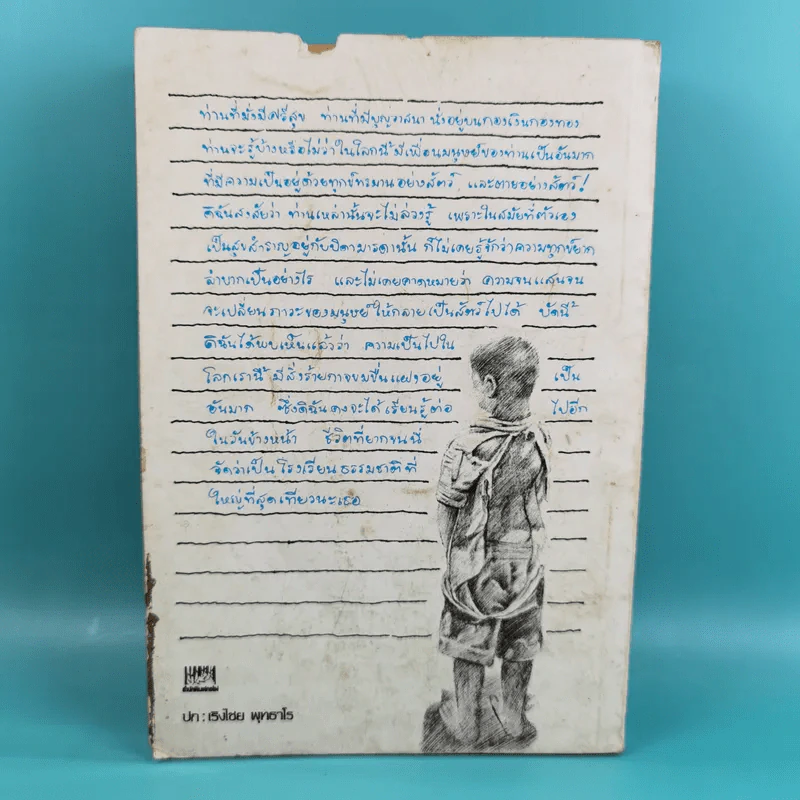 ท่านที่มั่งมีศรีสุข ท่านที่มีบุญวาสนา นั่งอยู่บนกองเงินกองทอง
ท่านจะรู้บ้างหรือไม่ว่าในโลกนี้ มีเพื่อนมนุษย์ของท่านเป็นอันมาก
ที่มีความเป็นอยู่ด้วยทุกข์ทรมานอย่างสัตว์ และตายอย่างสัตว์!
ดิฉันสงสัยว่า ท่านเหล่านั้นจะไม่ล่วงรู้ เพราะในสมัยที่ตัวเอง
เป็นสุขสำราญอยู่กับบิดามารดานั้น ก็ไม่เคยรู้จักว่าความทุกข์ยาก
ลำบากเป็นอย่างไร และไม่เคยคาดหมายว่า ความจนแสนจน
จะเปลี่ยนภาวะของมนุษย์ให้กลายเป็นสัตว์ไปได้ บัดนี้
ดิฉันได้พบเห็นแล้วว่า ความเป็นไปใน
โลกเรานี้ มีสิ่งร้ายกาจขมขื่นแฝงอยู่ เป็น
อันมาก ซึ่งดิฉันคงจะได้เรียนรู้ต่อ ไปอีก
ในวันข้างหน้า ชีวิตที่ยากจนนี่
จัดว่าเป็นโรงเรียนธรรมชาติที่
ใหญ่ที่สุดเทียวนะเธอ
ปก : เริงไชย พุทธาโร